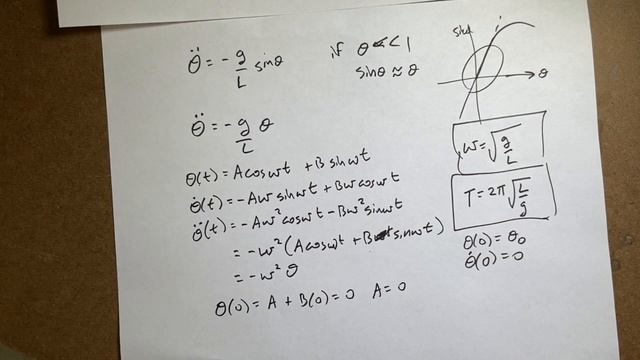 θ̈ = - g/L sinθ
if θ << 1
sinθ ≈ θ
θ
θ̈ = - g/L θ
ω = √(g/L)
T = 2π √(L/g)
θ(t) = A cos ωt + B sin ωt
θ̇(t) = -Aω sin ωt + Bω cos ωt
θ̈(t) = -Aω² cos ωt - Bω² sin ωt
= -ω² (A cos ωt + B sin ωt)
= -ω² θ
θ(0) = θ₀
θ̇(0) = 0
θ(0) = A + B(0) = 0 A = 0